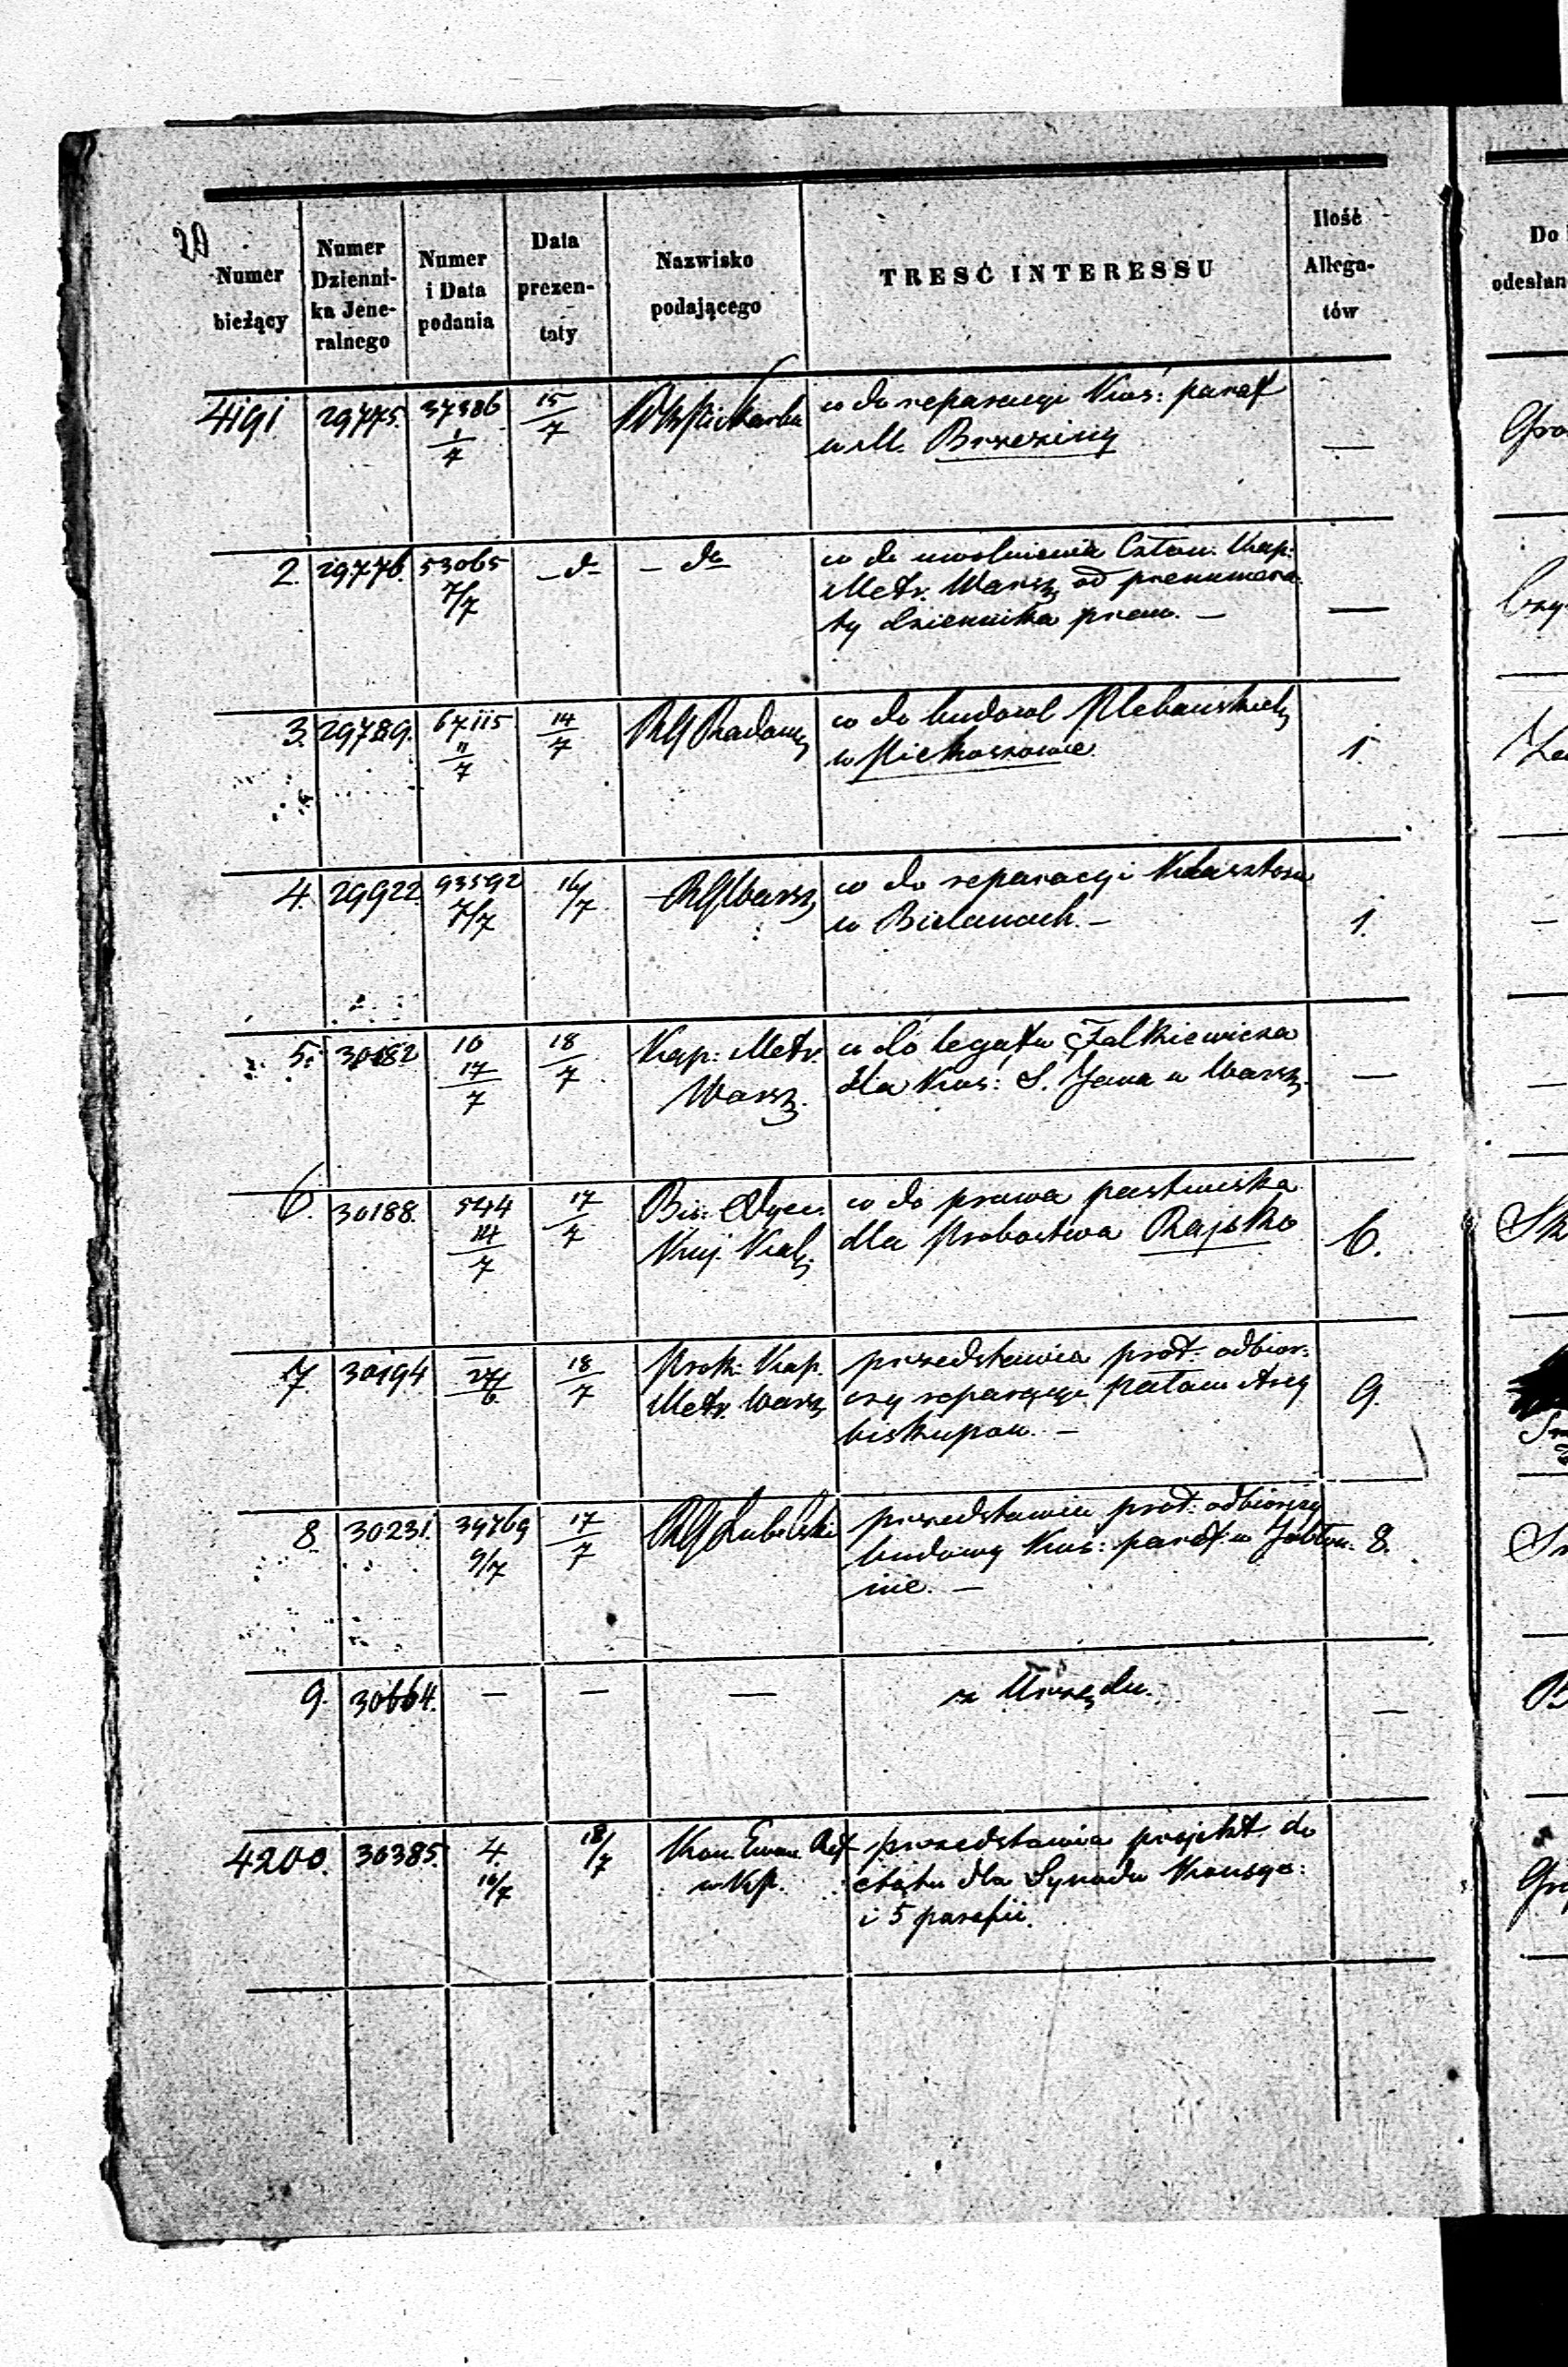 20
Numer bieżący
Numer Dzienni-ka Jene-ralnego
Numer i Data podania
Data prezen-taty
Nazwisko podającego
TREŚĆ INTERESSU
Ilość Allega-tów
Do
odesłan
4191. 29775. 37386 1/7 15/7 Skarbu co do reparacyi Kos: paraf —
w M. Brzeziny
2. 29776. 53065 7/7 – do – do co do uwolnienia Człon. Kap: —
Metr. Warsz od prenumera-
ty dziennika praw. –
3. 29789. 67115 11/7 14/7 RG Radom co do budowl Plebańskich 1.
w Piekoszowie
4. 29922. 93592 7/7 16/7 RG Warsz co do reparacyi Klasztoru 1.
w Bielanach. –
5. 30182 10 17/7 18/7 Kap: Metr. co do legatu Falkiewicza —
Warsz. dla Kos: S. Jana w Warsz.
6. 30188. 544 14/7 17/7 co do prawa pastwiska 6.
dla Probostwa Rajsko
7. 30194 — 27/6 18/7 Prok: Kap. przedstawia prot. odbior- 9.
Metr. Warsz czy reparacyi pałacu Arcy
biskupow. –
8. 30231. 39769 9/7 17/7 RG Lubelski przedstawia prot. odbiorczy 8.
budowy Kos: paraf. w Jabłon-
nie. –
9. 30664. — — — z Urzędu. —
4200. 30385. 4. 16/7 18/7 Kon. Ewan. Ref przedstawia projekt do
w KP. etatu dla Synodu Konsys:
i 5 parafii.